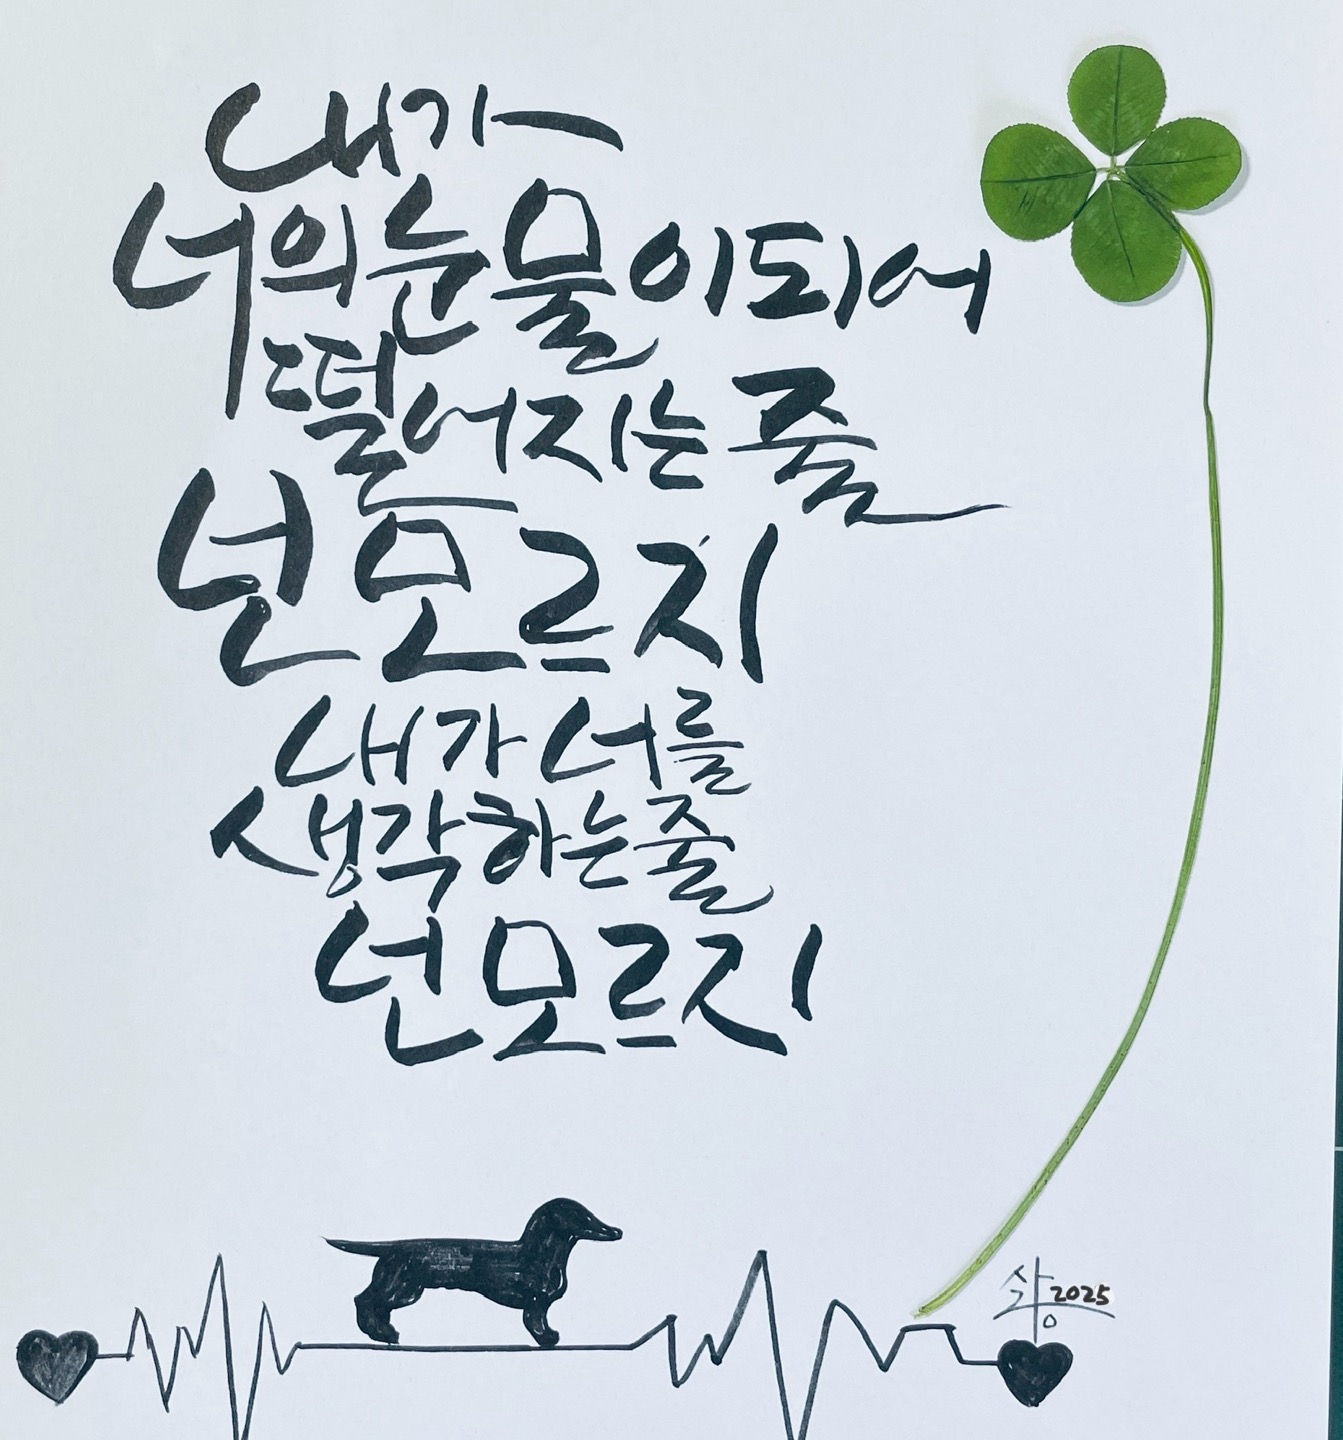 내가
너의 눈물이 되어
떨어지는 줄
넌 모르지
내가 너를
생각하는 줄
넌 모르지
상 2025